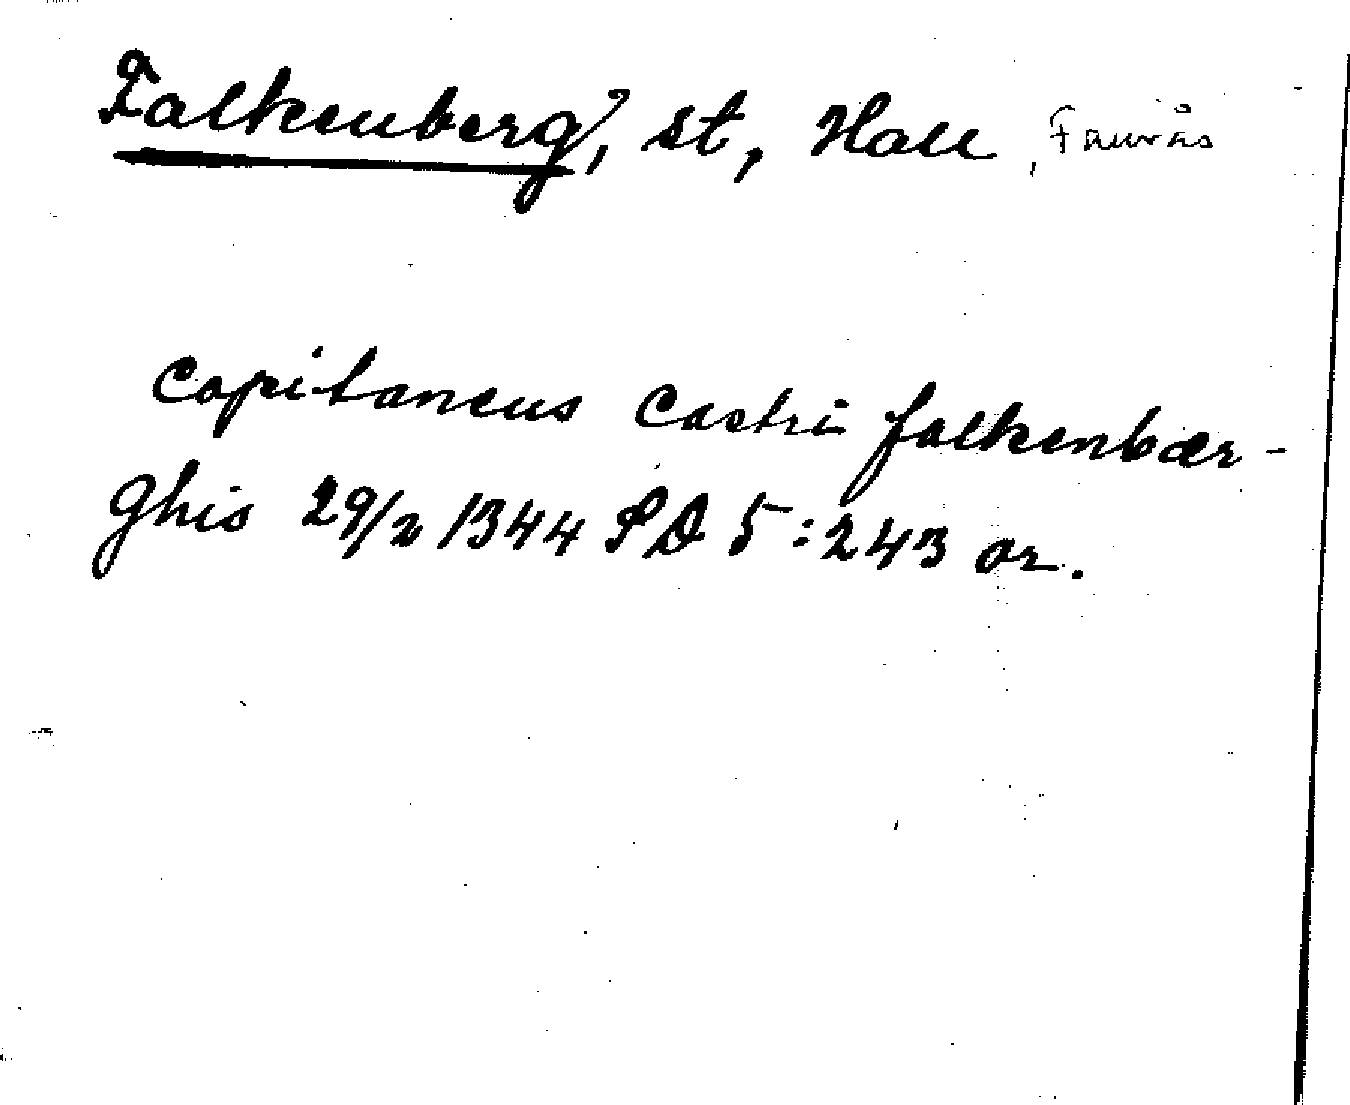 Falkenberg, st, Hall, Faurås
capitaneus castri falkenbær-
ghis 29/2 1344 SD 5:243 or.